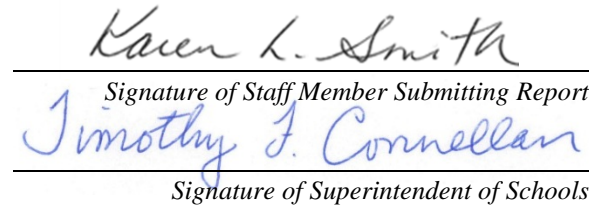 Karen L. Smith
Signature of Staff Member Submitting Report
Timothy F. Connellan
Signature of Superintendent of Schools